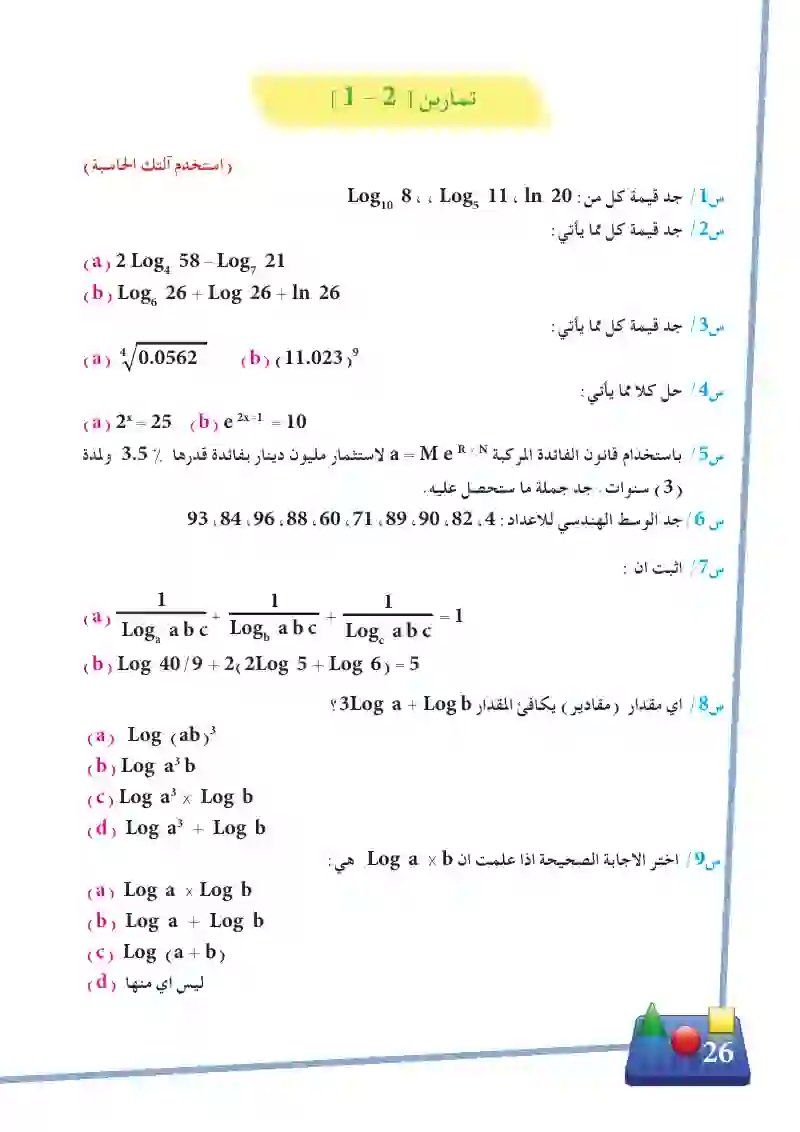 تمارين [ 2 - 1 ]
( استخدم آلتك الحاسبة )
س1/ جد قيمة كل من : Log₁₀ 8 ، ، Log₅ 11 ، ln 20
س2/ جد قيمة كل مما يأتي :
( a ) 2 Log₄ 58 – Log₇ 21
( b ) Log₆ 26 + Log 26 + ln 26
س3/ جد قيمة كل مما يأتي :
( a ) ⁴√0.0562 ( b ) ( 11.023 )⁹
س4/ حل كلا مما يأتي :
( a ) 2ˣ = 25 ( b ) e ²ˣ⁺¹ = 10
س5/ باستخدام قانون الفائدة المركبة a = M e ᴿ ˣ ᴺ لاستثمار مليون دينار بفائدة قدرها 3.5 % ولمدة
( 3 ) سنوات . جد جملة ما ستحصل عليه .
س6 / جد الوسط الهندسي للاعداد : 4 ، 82 ، 90 ، 89 ، 71 ، 60 ، 88 ، 96 ، 84 ، 93
س7/ اثبت ان :
( a ) 1 / Logₐ a b c + 1 / Log_b a b c + 1 / Log_c a b c = 1
( b ) Log 40/9 + 2( 2Log 5 + Log 6 ) = 5
س8/ اي مقدار ( مقادير ) يكافئ المقدار 3Log a + Log b ؟
( a ) Log ( ab )³
( b ) Log a³ b
( c ) Log a³ × Log b
( d ) Log a³ + Log b
س9/ اختر الاجابة الصحيحة اذا علمت ان Log a × b هي :
( a ) Log a × Log b
( b ) Log a + Log b
( c ) Log ( a + b )
( d ) ليس اي منها
26